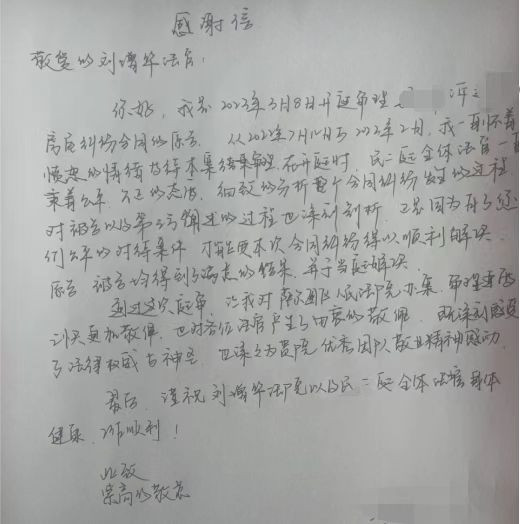 感谢信
敬爱的刘增华法官：
你好，我是2023年3月8日开庭审理
房屋纠纷合同的原告。从2022年7月12日至2022年2月，我一直怀着
忐忑的情绪对待本案结果审理。在开庭时，民二庭全体法官一直
秉着公平、公正的态度，细致的分析整个合同纠纷发生的过程
对被告以及第三方阐述的过程也深刻剖析。正是因为有了您
们公平的对待案件，才能使本次合同纠纷得以顺利解决。
原告、被告均得到了满意的结果，并于当庭解决。
通过这次庭审，让我对 人民法院办案、审理
更加敬佩，也对各位法官产生了由衷的敬佩。既深刻感受
了法律权威与神圣，也深之为贵院优秀团队敬业精神感动。
最后，谨祝刘增华法官以及民二庭全体法官身体
健康，工作顺利！
此致
崇高的敬意